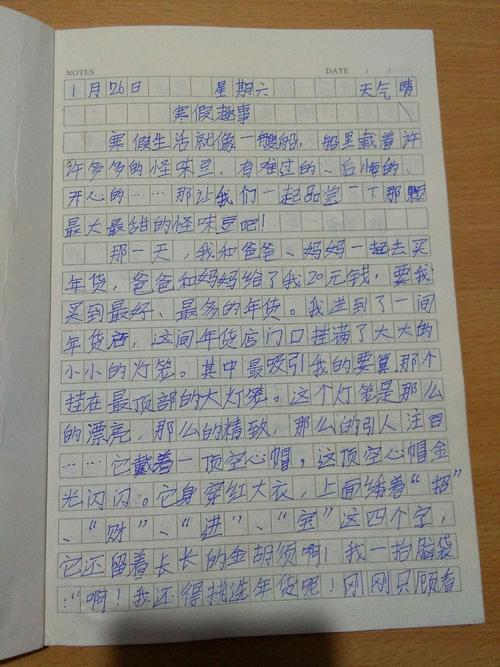 NOTES DATE / /
1月26日 星期六 天气晴
寒假趣事
寒假生活就像一艘船，船里载着许
许多多的怪味豆。有难过的、后悔的、
开心的……那让我们一起品尝一下那颗
最大最甜的怪味豆吧！
那一天，我和爸爸、妈妈一起去买
年货，爸爸和妈妈给了我20元钱，要我
买到最好、最多的年货。我进到了一间
年货店，这间年货店门口挂满了大大的
小小的灯笼。其中最吸引我的要算那个
挂在最顶部的大灯笼。这个灯笼是那么
的漂亮，那么的精致，那么的引人注目
……它戴着一顶空心帽，这顶空心帽金
光闪闪。它身穿红大衣，上面绣着“招”
、“财”、“进”、“宝”这四个字，
它还留着长长的金胡须啊！我一拍脑袋
：“啊！我还得挑选年货呢！刚刚只顾着